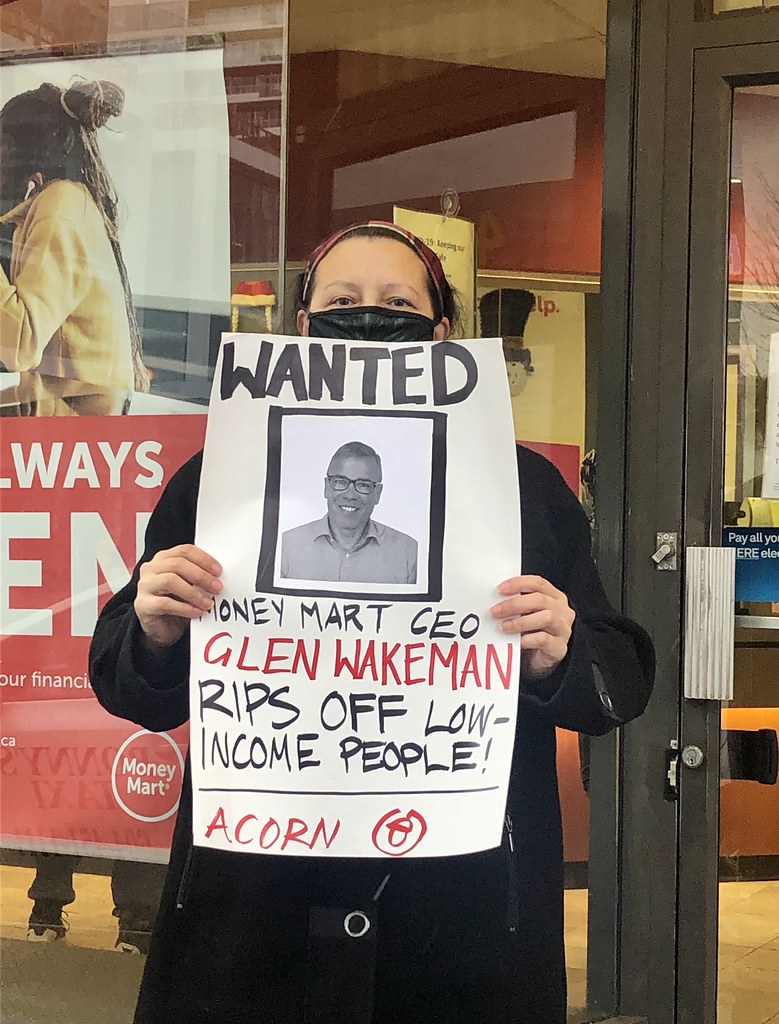 WANTED
MONEY MART CEO
GLEN WAKEMAN
RIPS OFF LOW-
INCOME PEOPLE!
ACORN
LWAYS
EN
our financi
ca
Money
Mart
-19: Keeping ou
lp.
Pay all yo
ERE elec